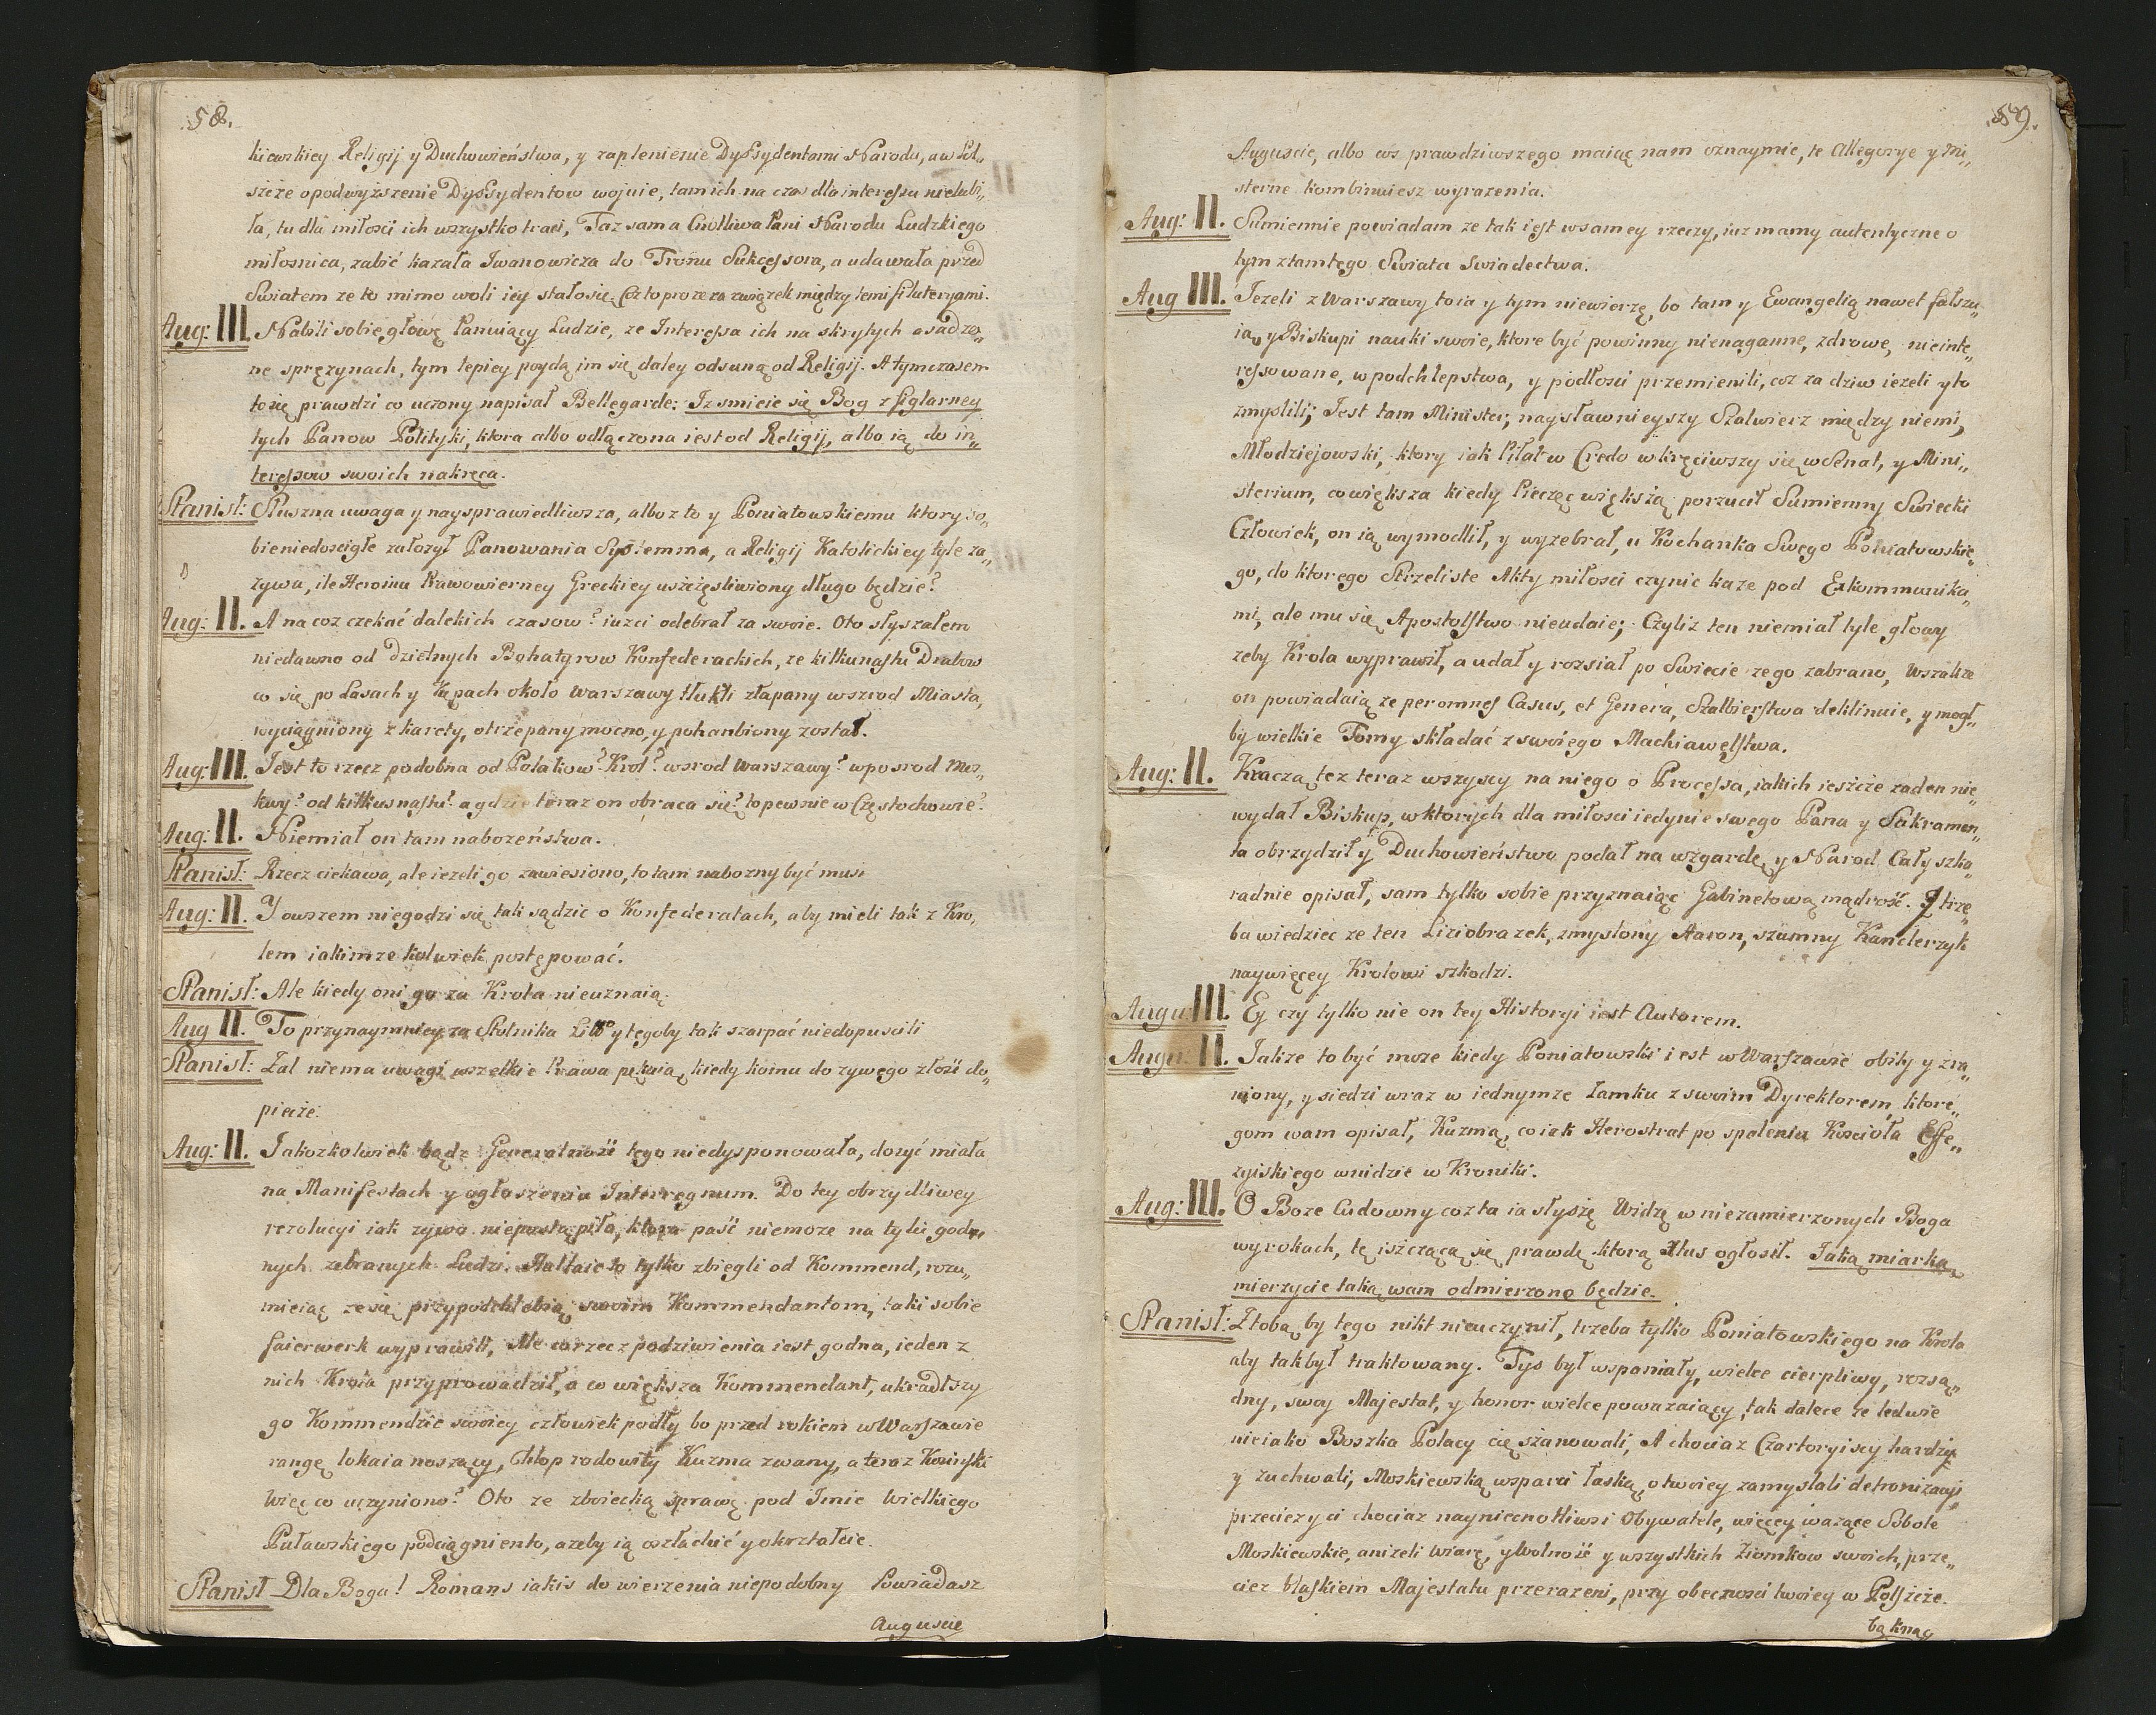 58.
kiewskiey Religij y Duchowieństwa, y zaplenienie Dyssydentami Narodu, a w Pol„
szcze o podwyższenie Dyssydentow wojuie, tam ich na czas dla interessu nielubi„
ła, tu dla miłości ich wszystko traci, Taż sama Cnotliwa Pani Narodu Ludzkiego
miłosnica, zabić kazała Iwanowicza do Tronu Sukcessora, a udawała przed
Swiatem ze to mimo woli iey stało się. Coz to prozeza związek między temi filuteryami.
Aug: III. Nabili sobie głowę Panuiący Ludzie, ze Interessa ich na skrytych osadzo„
ne sprężynach, tym lepiey poydą im się daley odsuną od Religij. A tymczasem
to się prawdzi co uczony napisał Bellegarde: Iz smieie się Bog z figlarney
tych Panow Polityki, ktora albo odłączona iest od Religij, albo ią do in„
teressow swoich nakręca.
Stanisł: Słuszna uwaga y naysprawiedliwsza, alboz to y Poniatowskiemu ktory so„
bie niedoscigłe założył Panowania Systemma, a Religij Katolickiey tyle za„
zywa, ile Heroinu Prawowierney Greckiey uszczęsliwiony długo będzie?
Aug: II. A na coz czekać dalekich czasow? iuzci odebrał za swoie. Oto słyszałem
niedawno od dzielnych Bohatyrow Konfederackich, ze kilkunastu Drabow
co się po Lasach y Kępach około Warszawy tłukli złapany wszrod Miasta,
wyciągniony z karety, otrzepany mocno, y pohanbiony został.
Aug: III. Jest to rzecz podobna od Polakow? Krol? wsrod Warszawy? w posrod Mos„
kwy? od kilkusnastu? a gdzie teraz on obraca się? to pewnie w Częstochowie?
Aug: II. Niemiał on tam nabożeństwa.
Stanisł: Rzecz ciekawa, ale iezeli go zawiesiono, to tam nabozny być musi
Aug: II. Y owszem niegodzi się tak sądzic o Konfederatach, aby mieli tak z Kro,
lem iakimze kolwiek postępować.
Stanisł: Ale kiedy oni go za Krola nieuznaią.
Aug II. To przynaymniey za Stolnika Littº y tegoby tak szarpać niedopuscili
Stanisł: Zal niema uwagi wszelkie Prawa pękaią kiedy komu do zywego złość do„
piecze.
Aug: II. Jakozkolwiek bądz Generalność tego niedysponowała, dozyć miała
na Manifestach y ogłoszeniu Interregnum. Do tey obrzydliwey
rezolucyi iak zywo niepostąpiła, ktora paść niemoze na tylu godn
nych zebranych Ludzi. Hultaie to tylko zbiegli od Kommend, rozu„
mieiąc ze się przypodchlebią swoim Kommendantom, taki sobie
faierwerk wyprawili, Ale co rzecz podziwienia iest godna, ieden z
nich Krola przyprowadził, a co większa Kommendant, ukradłszy
go Kommendzie swoiey człowiek podły bo przed rokiem w Warszawie
rangę lokaia noszący, Chłop rodowity Kuzma zwany, a teraz Kosinski
Więc co uczyniono? Oto ze zboiecką sprawę pod Imie Wielkiego
Puławskiego podciągniento, azeby ią oszlachcić y okształcic.
Stanisł Dla Boga! Romans iakis do wierzenia niepodobny Powiadasz
Auguscie
59.
Auguscie, albo cos prawdziwszego maiąc nam oznaymic, te Allegorye y mi„
sterne kombinuiesz wyrazenia.
Aug: II. Sumiennie powiadam ze tak iest w samey rzeczy, iuz mamy autentyczne o
tym z tamtego Swiata Swiadectwa.
Aug III. Jezeli z Warszawy to ia y tym niewierzę, bo tam y Ewangelią nawet fałszu„
ią, y Biskupi nauki swoie, ktore być powinny nienaganne, zdrowe, nieinte„
ressowane, w podchlepstwa, y podłosci przemienili, coz za dziw iezeli y to
zmyslili; Jest tam Minister, naysławnieyszy Szalwierz między niemi,
Młodziejowski, ktory iak Piłat w Credo wkręciwszy się w Senat, y Mini„
sterium, co większa kiedy Pieczęc większą porzucił Sumienny Swiecki
Człowiek, on ią wymodlił, y wyzebrał, u Kochanka Swego Poniatowskie„
go, do ktorego Strzeliste Akty miłosci czynic kaze pod Exkommunika„
mi, ale mu się Apostolstwo nieudaie; Czyliz ten niemiał tyle głowy
zeby Krola wyprawił, a udał y rozsiał po Swiecie ze go zabrano, wszakze
on powiadaią ze per omnes Casus, et Genera, Szalbierstwa deklinuie, y mogł„
by wielkie Tomy składać z swoiego Machiawelstwa.
Aug: II. Kraczą tez teraz wszyscy na niego o Processa, iakich ieszcze zaden nie„
wydał Biskup, w ktorych dla miłosci iedynie swego Pana y Sakramen„
ta obrzydził y Duchowieństwo podał na wzgardę, y Narod Cały szka„
radnie opisał, sam tylko sobie przyznaiąc Gabinetową mądrość. I trze„
ba wiedziec ze ten Liziobrazek, zmyslony Aaron, szumny Kanclerzyk
naywięcey Krolowi szkodzi.
Augu: III. Ey czy tylko nie on tey Historyi iest Autorem.
Augu: II. Jakze to być moze kiedy Poniatowski iest w Warszawie obity y zra„
niony, y siedzi wraz w iednymze Zamku z swoim Dyrektorem, ktore„
gom wam opisał, Kuzmą, co iak Herostrat po spaleniu Koscioła Effe„
zyiskiego wnidzie w Kroniki.
Aug: III. O Boze Cudowny coz ta ia słyszę Widzę w niezamierzonych Boga
wyrokach, tę iszczącą się prawdę ktorą Xtus ogłosił. Jaką miarką
mierzycie taką wam odmierzone będzie.
Stanisł: Z tobą by tego nikt nieuczynił, trzeba tylko Poniatowskiego na Krola
aby tak był traktowany. Tys był wspaniały, wielce cierpliwy, rozsą„
dny, swoy Majestat, y honor wielce powazaiący, tak dalece ze ledwie
nieiako Boszka Polacy cię szanowali, A chociaz Czartoryiscy hardzy
y zuchwali, Moskiewską wsparci łaską, o twoiey zamyslali detronizacyi
przeciez y ci chociaz nayniecnotliwsi Obywatele, więcey wazące Sobole
Moskiewskie, anizeli Wiarę, y Wolność y wszystkich Ziomkow swoich, prze„
ciez blaskiem Majestatu przerazeni, przy obecnosci twoiey w Polszcze.
bąknąc